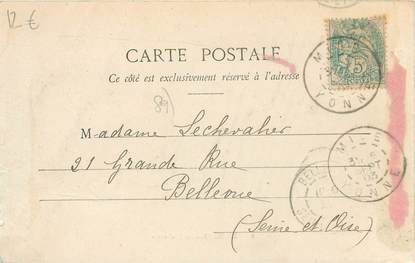 12 €
CARTE POSTALE
Ce côté est exclusivement réservé à l'adresse
89
5
YONNE
Madame Lechevalier
21 Grande Rue
Bellevue
(Seine et Oise)